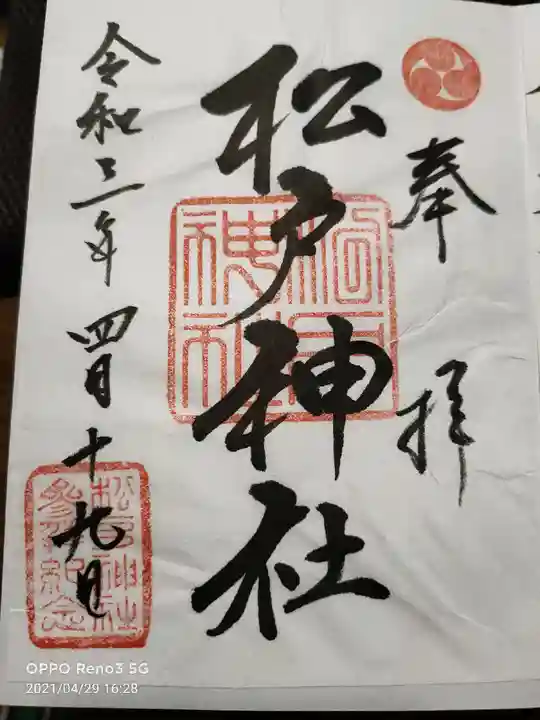 奉拝
松戸神社
松戸神社
令和三年四月十九日
松戸神社参拝記念
OPPO Reno3 5G
2021/04/29 16:28